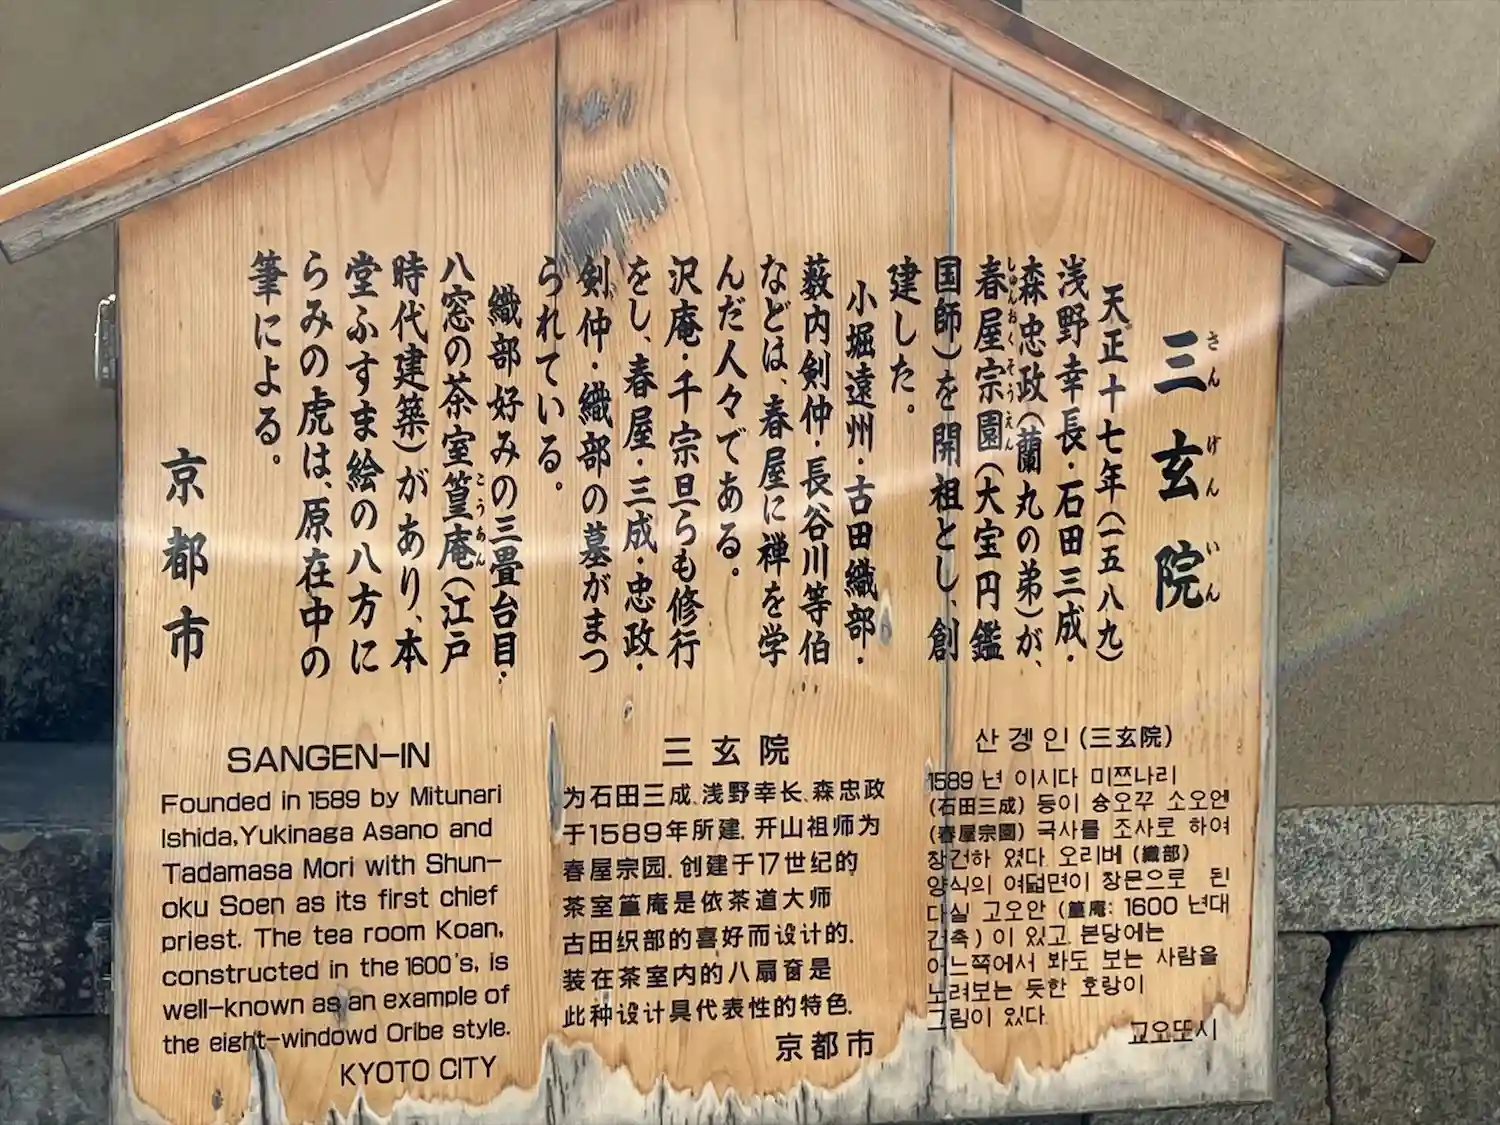 三玄院
さんげんいん
天正十七年(一五八九)
浅野幸長・石田三成・
森忠政(蘭丸の弟)が、
春屋宗園(大宝円鑑
しゅんおくそうえん
国師)を開祖とし、創
建した。
小堀遠州・古田織部・
薮内剣仲・長谷川等伯
などは、春屋に禅を学
んだ人々である。
沢庵・千宗旦らも修行
をし、春屋・三成・忠政・
剣仲・織部の墓がまつ
られている。
織部好みの三畳台目・
八窓の茶室篁庵(江戸
こうあん
時代建築)があり、本
堂ふすま絵の八方に
らみの虎は、原在中の
筆による。
京都市
SANGEN-IN
Founded in 1589 by Mitunari
Ishida,Yukinaga Asano and
Tadamasa Mori with Shun-
oku Soen as its first chief
priest. The tea room Koan,
constructed in the 1600's, is
well-known as an example of
the eight-windowd Oribe style.
KYOTO CITY
三玄院
为石田三成、浅野幸长、森忠政
于1589年所建. 开山祖师为
春屋宗园. 创建于17世纪的
茶室篁庵是依茶道大师
古田织部的喜好而设计的.
装在茶室内的八扇窗是
此种设计具代表性的特色.
京都市
산겡인(三玄院)
1589년 이시다 미쯔나리
(石田三成) 등이 슝오꾸 소오엔
(春屋宗園) 국사를 조사로 하여
창건하 였다. 오리베(織部)
양식의 여덟면이 창문으로 된
다실 고오안(篁庵: 1600년대
건축)이 있고, 본당에는
어느쪽에서 봐도 보는 사람을
노려보는 듯한 호랑이
그림이 있다.
교오또시